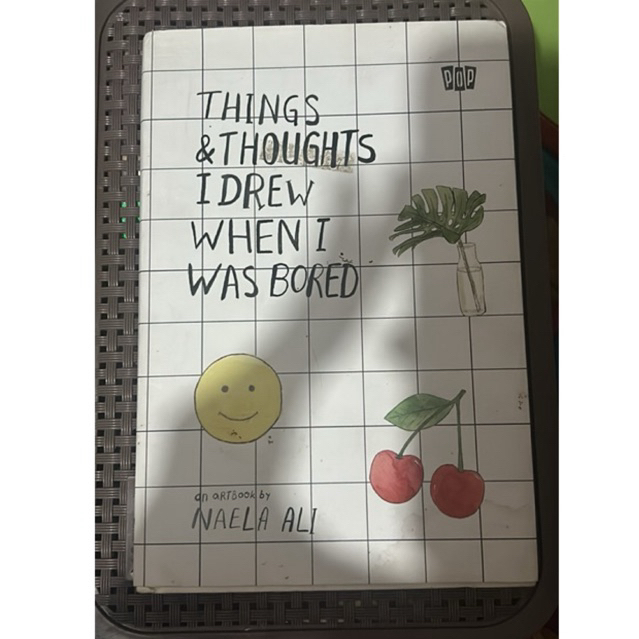 POP
THINGS
& THOUGHTS
I DREW
WHEN I
WAS BORED
an ARTBOOK by
NAELA ALI